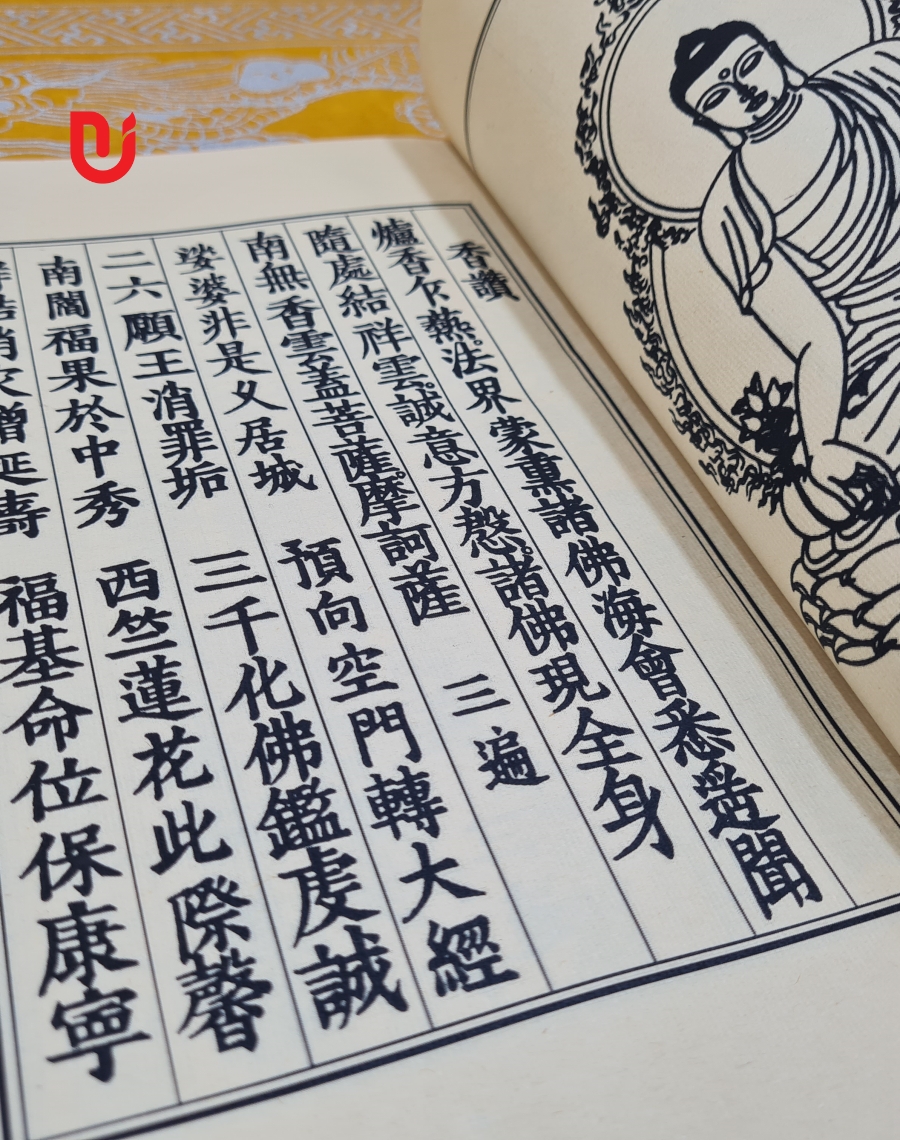 香讚
爐香乍熱。法界蒙熏諸佛海會悉遥聞
隨處結祥雲。誠意方慇。諸佛現全身
南無香雲盖菩薩。摩訶薩 三遍
娑婆非是乂居城 預向空門轉大經
二六願王消罪垢 三千化佛鑑虔誠
南閻福果於中秀 西竺蓮花此際馨
結消灾增延壽 福基命位保康寧